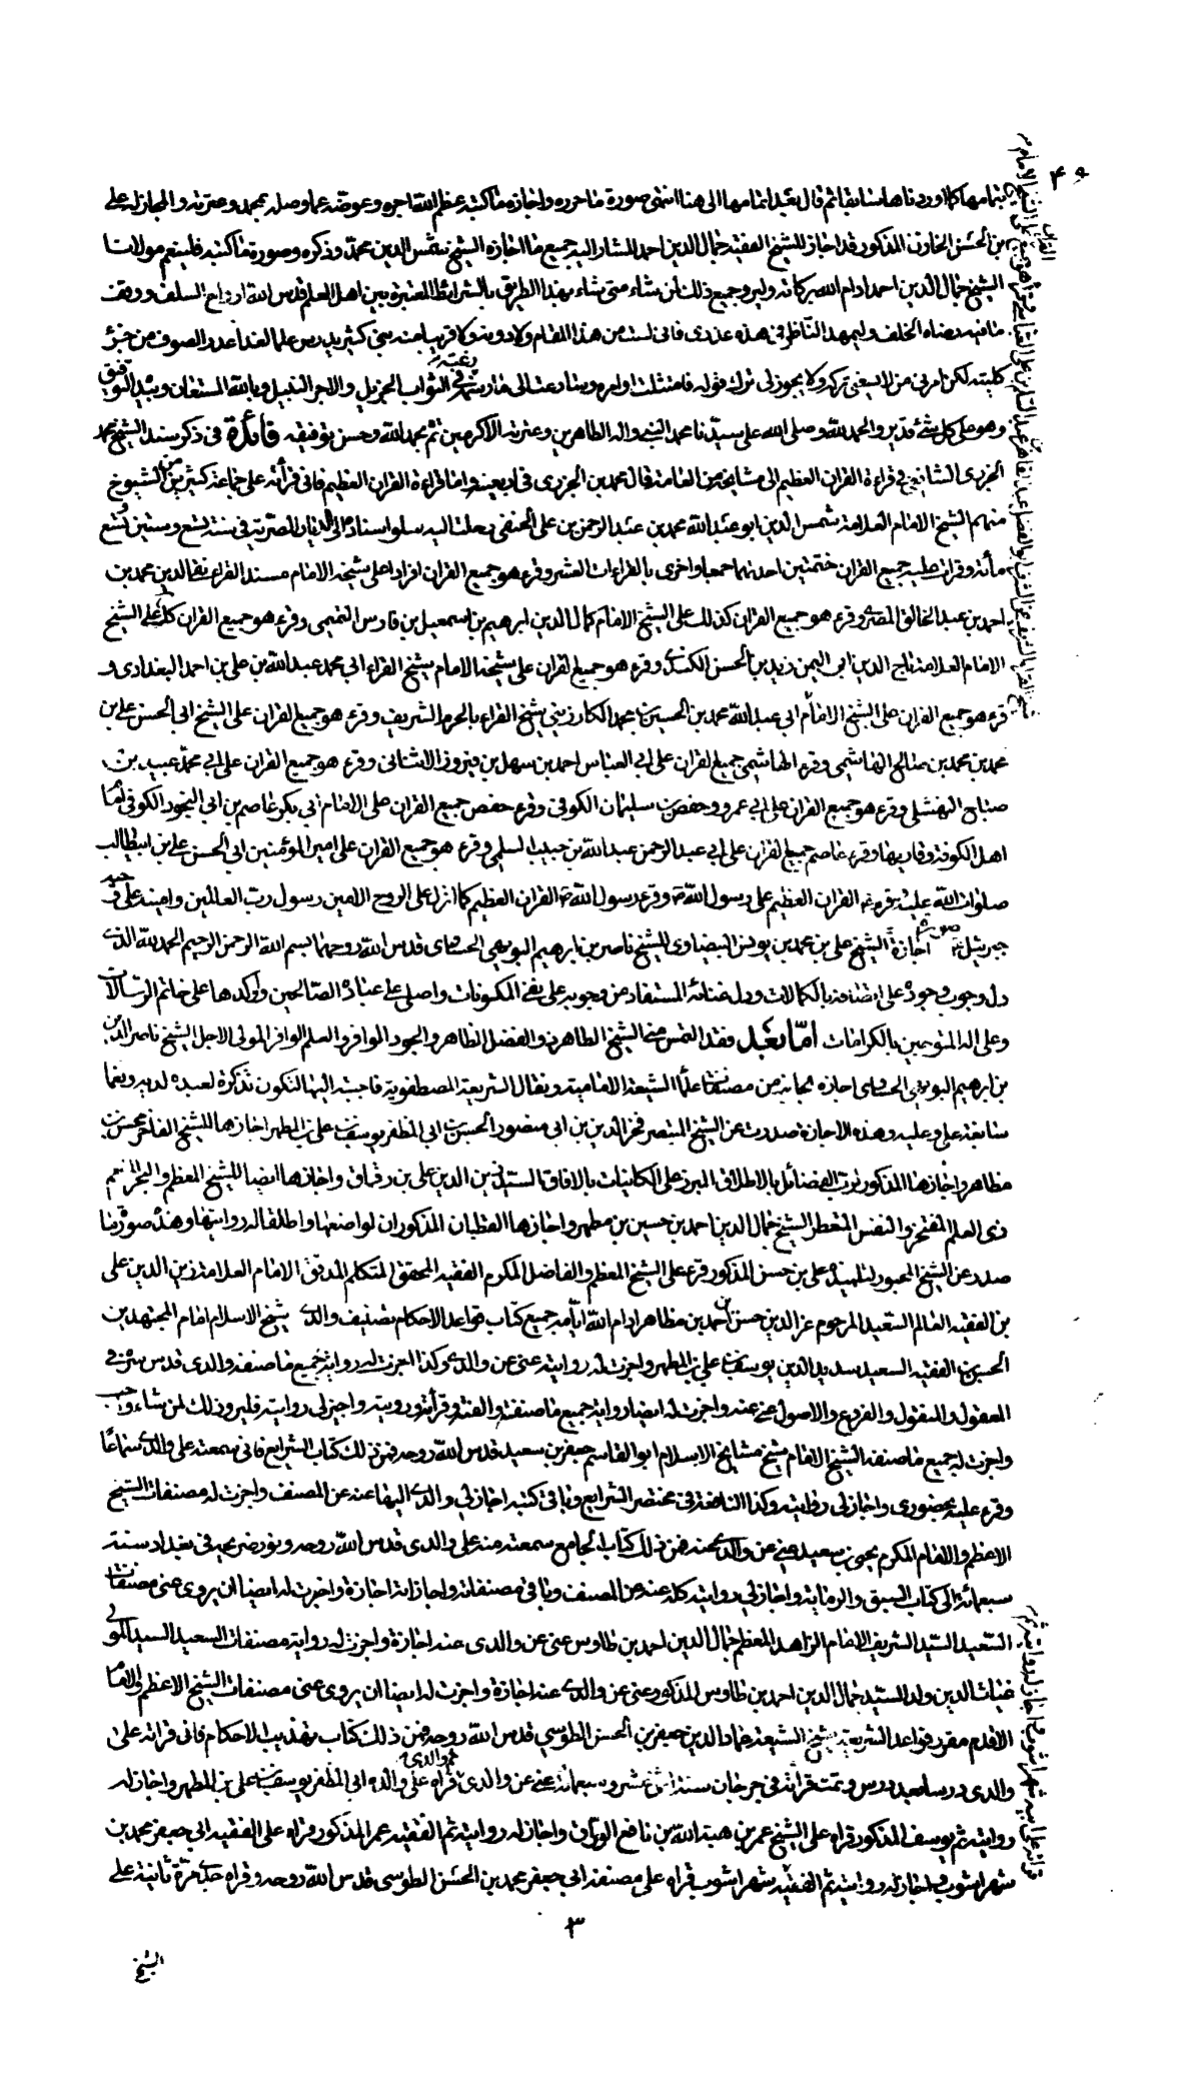 ۴۹
بتمامها كما اوردناها سابقا ثم قال بعد اتمامها الى هنا انتهى صورة ما حرره واجازه مما كتبه عظم الله اجره وعوضه عما وصله بمحمد وعترته والمجاز له على
بن الحسن الخازن المذكور قد اجاز للشيخ الفقيه جمال الدين احمد المشار اليه جميع ما اجازه الشيخ شمس الدين محمد وذكره وصورة ما كتبه فلينعم مولانا
الشيخ جمال الدين احمد ادام الله بركاته وليرو جميع ذلك لمن شاء متى شاء بهذا الطريق بالشرائط المعتبرة بين اهل العلم قدس الله ارواح السلف ووفقنا
ما فيه رضاه الخلف وليمهد الناظر في هذه عذري فاني لست من هذا المقام ولا دونه ولا قريبا منه
كليته لكن امرني من لا يسعني تركه ولا يجوز لي ترك قوله فامتثلت اوامره رغبة في الثواب الجزيل والاجر النبيل وبالله المستعان وبيده التوفيق
وهو على كل شئ قدير والحمد لله وصلى الله على سيدنا محمد النبي واله الطاهرين وعترته الاكرمين تم بحمد الله وحسن توفيقه فائدة في ذكر سند الشيخ محمد
الجزري الشافعي في قراءة القران العظيم الى مشايخه من العامة قال محمد بن الجزري في اربعينه واما قراءة القران العظيم فاني قرأته على جماعة كثيرين من الشيوخ
منهم الشيخ الامام العلامة شمس الدين ابو عبد الله محمد بن عبد الرحمن بن على الحنفي رحلت اليه لعلو اسناده الى الديار المصرية في سنة تسع وستين وسبع
مأئة وقرات عليه جميع القران ختمتين احدىهما جمعا واخرى بالقراءات العشر وقرء هو جميع القران افرادا على شيخه الامام مسند القراء تقي الدين محمد بن
احمد بن عبد الخالق المصري وقرء هو جميع القران كذلك على الشيخ الامام كمال الدين ابرهيم بن اسمعيل بن فارس التميمي وقرء هو جميع القران كذلك على الشيخ
الامام العلامة تاج الدين ابي اليمن زيد بن الحسن الكندي وقرء هو جميع القران على شيخه الامام شيخ القراء ابي محمد عبد الله بن على بن احمد البغدادي و
قرء هو جميع القران على الشيخ الامام ابي عبد الله محمد بن الحسين بن محمد الكارزيني شيخ القراء بالحرم الشريف وقرء هو جميع القران على الشيخ ابي الحسن على بن
محمد بن محمد بن صالح الهاشمي وقرء الهاشمي جميع القران على ابي العباس احمد بن سهل بن فيروز الاشناني وقرء هو جميع القران على ابي محمد عبيد بن
صباح النهشلي وقرء هو جميع القران على ابي عمرو وحفص بن سليمان الكوفي وقرء حفص جميع القران على الامام ابي بكر عاصم بن ابي النجود الكوفي امام
اهل الكوفة وقاريها وقرء عاصم جميع القران على ابي عبد الرحمن عبد الله بن حبيب السلمي وقرء هو جميع القران على امير المؤمنين ابي الحسن على بن ابيطالب
صلوات الله عليه وقرء القران العظيم على رسول الله ص وقرء رسول الله ص القران العظيم كما انزل على الروح الامين رسول رب العالمين وامينه على وحيه
جبرئيل ع صورة اجازة الشيخ على بن محمد بن يونس البياضي للشيخ ناصر بن ابرهيم البويهي الحساوي قدس الله روحهما بسم الله الرحمن الرحيم الحمد لله الذي
دل وجوب وجوده على اتصافه بالكمالات ودل غنائه المستفاد من وجوبه على نفي المكونات واصلي على عباده الصالحين واكدها على خاتم الرسالات
وعلى اله المتوجين بالكرامات اما بعد فقد التمس مني الشيخ الطاهر والفضل الظاهر والجود الوافر والعلم الوافر المولى الاجل الشيخ ناصر الدين
بن ابرهيم البويهي الحساوي اجازة لجانب من مصنفات علماء الشيعة الامامية ونقال الشريعة المصطفوية فاجبته اليها لتكون تذكرة لعبده لديه ونعما
سابغة علي وعليه وهذه الاجازة صدرت عن الشيخ المتبصر فخر الدين بن ابي منصور الحسن بن ابي المظفر يوسف بن على بن المطهر اجازها للشيخ الفاخر حسن بن
مظاهر واجازها المذكور لرب الفضائل بالاطلاق المبرز على الكائنات بالافاق السيد زين الدين على بن دقماق واجازها ايضا للشيخ المعظم والبحر الخضم
ذي العلم المفتخر والنفس المعطر الشيخ جمال الدين احمد بن حسين بن مطهر واجازها العظيمان المذكوران لواضعها واطلقا له روايتها وهذه صورة ما
صدر عن الشيخ المحبور لتلميذه على بن حسن المذكور قرء على الشيخ المعظم والفاضل المكرم الفقيه المحقق المتكلم المدقق الامام العلامة زين الدين على
بن الفقيه العالم السعيد المرحوم عز الدين حسن بن احمد بن مظاهر ادام الله ايامه جميع كتاب قواعد الاحكام تصنيف والدي شيخ الاسلام امام المجتهدين
الحسن بن الفقيه السعيد سديد الدين يوسف بن علي بن المطهر واجزت له روايته عني عن والدي وكذا اجزت له رواية جميع ما صنفه والدي قدس سره في
المعقول والمنقول والفروع والاصول عني عنه واجزت له ايضا رواية جميع ما صنفته والفته وقرأته ورويته واجيز لي روايته فليرو ذلك لمن شاء واحب
واجزت له جميع ما صنفه الشيخ الامام شيخ مشايخ الاسلام ابو القاسم جعفر بن سعيد قدس الله روحه فمن ذلك كتاب الشرايع فاني سمعته على والدي سماعا
وقرء عليه بحضوري واجاز لي روايته وكذا النافع في مختصر الشرايع وباقي كتبه اجاز لي والدي اليها عنه عن المصنف واجزت له مصنفات الشيخ
الاعظم والامام المكرم يحيى بن سعيد عني عن والدي عنه فمن ذلك كتاب الجامع سمعته منه على والدي قدس الله روحه ونور ضريحه في بغداد سنة
سبعمائة الى كتاب السبق والرماية واجاز لي روايته كله عنه عن المصنف وباقي مصنفاته واجازاته اجازة واجزت له ايضا ان يروي عني مصنفات
السعيد السيد الشريف الامام الزاهد المعظم جمال الدين احمد بن طاوس عني عن والدي عنه اجازة واجزت له رواية مصنفات السعيد السيد المولى
غياث الدين ولد السيد جمال الدين احمد بن طاوس المذكور عني عن والدي عنه اجازة واجزت له ايضا ان يروي عني مصنفات الشيخ الاعظم والامام
الاقدم مقرر قواعد الشريعة شيخ الشيعة عماد الدين جعفر بن الحسن الطوسي قدس الله روحه فمن ذلك كتاب تهذيب الاحكام فاني قرأته على
والدي درسا بعد درس وتمت قرأته في جرجان سنة اثنى عشر وسبعمائة عني عن والدي قرأه على والده ابي المظفر يوسف بن على بن المطهر واجاز له
روايته ثم يوسف المذكور قراه على الشيخ عمر بن هبة الله بن نافع الوراق واجاز له روايته ثم الفقيه عمر المذكور قراه على الفقيه ابي جعفر محمد بن
شهراشوب واجاز له روايته ثم الفقيه شهراشوب قراه على مصنفه ابي جعفر محمد بن الحسن الطوسي قدس الله روحه وقراه جدي مرة ثانية على
۳
الشيخ